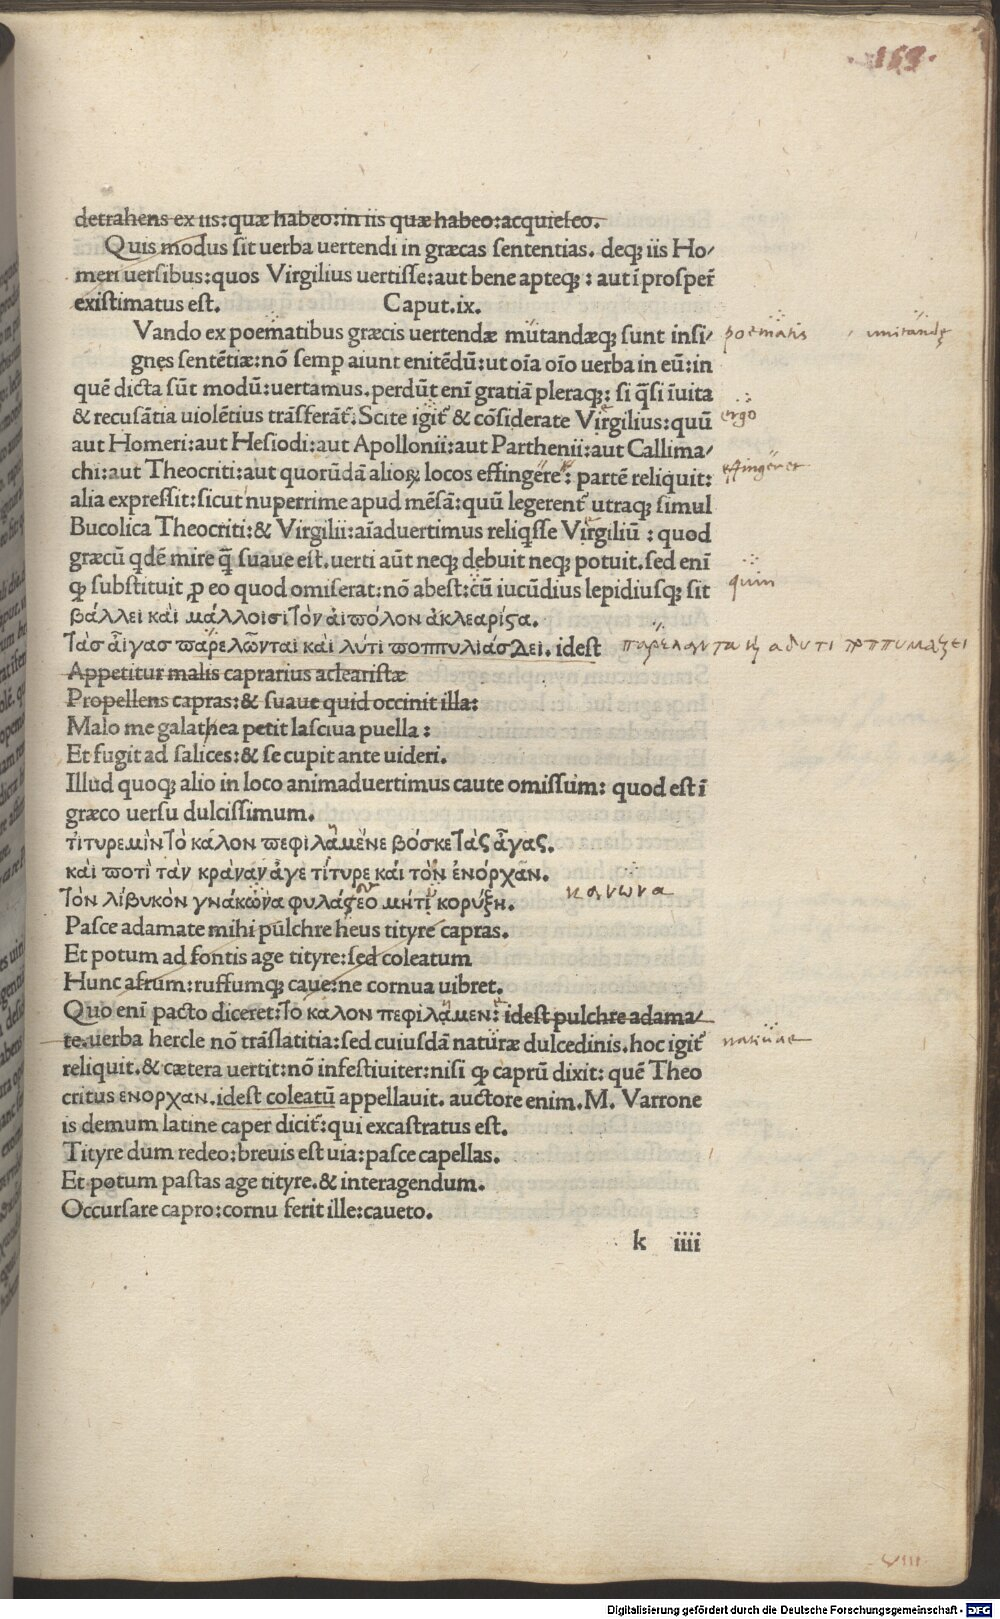 ·163·
detrahens ex iis:quæ habeo:in iis quæ habeo:acquiesco.
Quis modus sit uerba uertendi in græcas sententias. deq; iis Ho/
meri uersibus:quos Virgilius uertisse:aut bene apteq; : aut ĩ prosperẽ
existimatus est. Caput.ix.
Vando ex poematibus græcis uertendæ mutandæq; sunt insi/ poematis , imitandę
gnęs sentẽtiæ:nõ semp aiunt enitẽdũ:ut oĩa oĩo uerba in eũ:in
quẽ dicta sũt modũ:uertamus.perdũt enĩ gratiã pleraq;: si q̃si ĩuita
& recusãtia uiolẽtius trãsferãt̃.Scite igit̃ & cõsiderate Virgilius:quũ ergo
aut Homeri:aut Hesiodi:aut Apollonii:aut Parthenii:aut Callima/
chi:aut Theocriti:aut quorũdã alioꝝ locos effingere: partẽ reliquit: effingeret
alia expressit:sicut nuperrime apud mẽsã:quũ legerent̃ utraq; simul
Bucolica Theocriti:& Virgilii:aĩaduertimus reliq̃sse Virgiliũ : quod
græcũ qdẽ mire q̃ suaue est.uerti aũt neq; debuit neq; potuit.sed enĩ
ꝙ substituit ꝓ eo quod omiserat:nõ abest:cũ iucũdius lepidiusq; sit quin
βάλλει καὶ μάλλοισι τὸν ἀιπόλον ἀκλεαρίςα.
τὰσ αἶγασ παρελῶνταὶ καὶ λύτι ποππυλιάσδει. idest παρελαντα κ̀ αδυτι ποππυλιαζει
Appetitur malis caprarius aclearistæ
Propellens capras:& suaue quid occinit illa:
Malo me galathea petit lasciua puella :
Et fugit ad salices:& se cupit ante uideri.
Illud quoq; alio in loco animaduertimus caute omissum: quod est ĩ
græco uersu dulcissimum.
τίτυρεμὶν τὸ κάλον πεφιλαμένε βόσκε τὰς ἆγας.
καὶ ποτὶ τὰν κράναν ἀγε τίτυρε καί τὸν ἐνόρχαν.
τὸν λίβυκὸν γνάκωνα φυλάςεο μήτι κορύξη. κανωνα
Pasce adamate mihi pulchre heus tityre capras.
Et potum ad fontis age tityre:sed coleatum
Hunc afrum:ruffumq; caue:ne cornua uibret.
Quo enĩ pacto diceret:τὸ καλον πεφιλαμεν: idest pulchre adama/
te.uerba hercle nõ trãslatitia:sed cuiusdã naturæ dulcedinis.hoc igit̃ natiuae
reliquit.& cætera uertit:nõ infestiuiter:nisi ꝙ caprũ dixit: quẽ Theo
critus ενορχαν.idest coleatũ appellauit. auctore enim.M. Varrone
is demum latine caper dicit̃:qui excastratus est.
Tityre dum redeo:breuis est uia:pasce capellas.
Et potum pastas age tityre.& interagendum.
Occursare capro:cornu ferit ille:caueto.
k iiii
viii
Digitalisierung gefördert durch die Deutsche Forschungsgemeinschaft - DFG